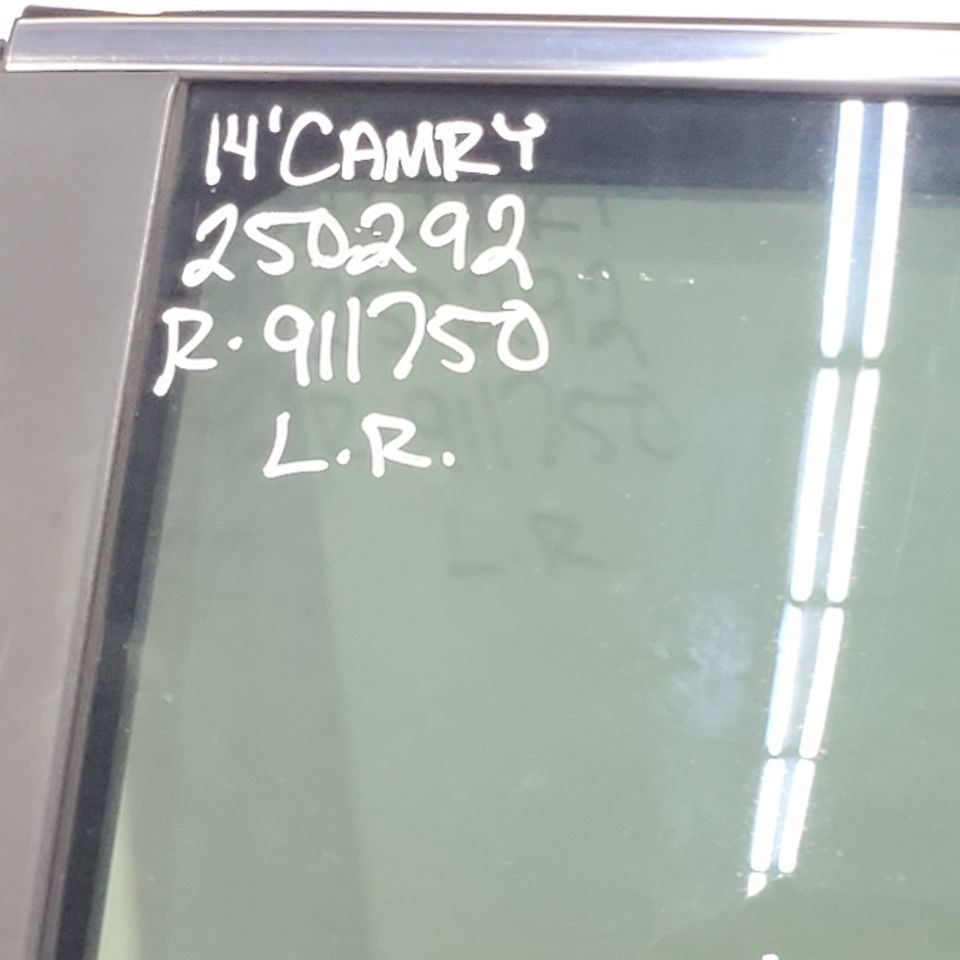 14'CAMRY
250292
R·911750
L.R.